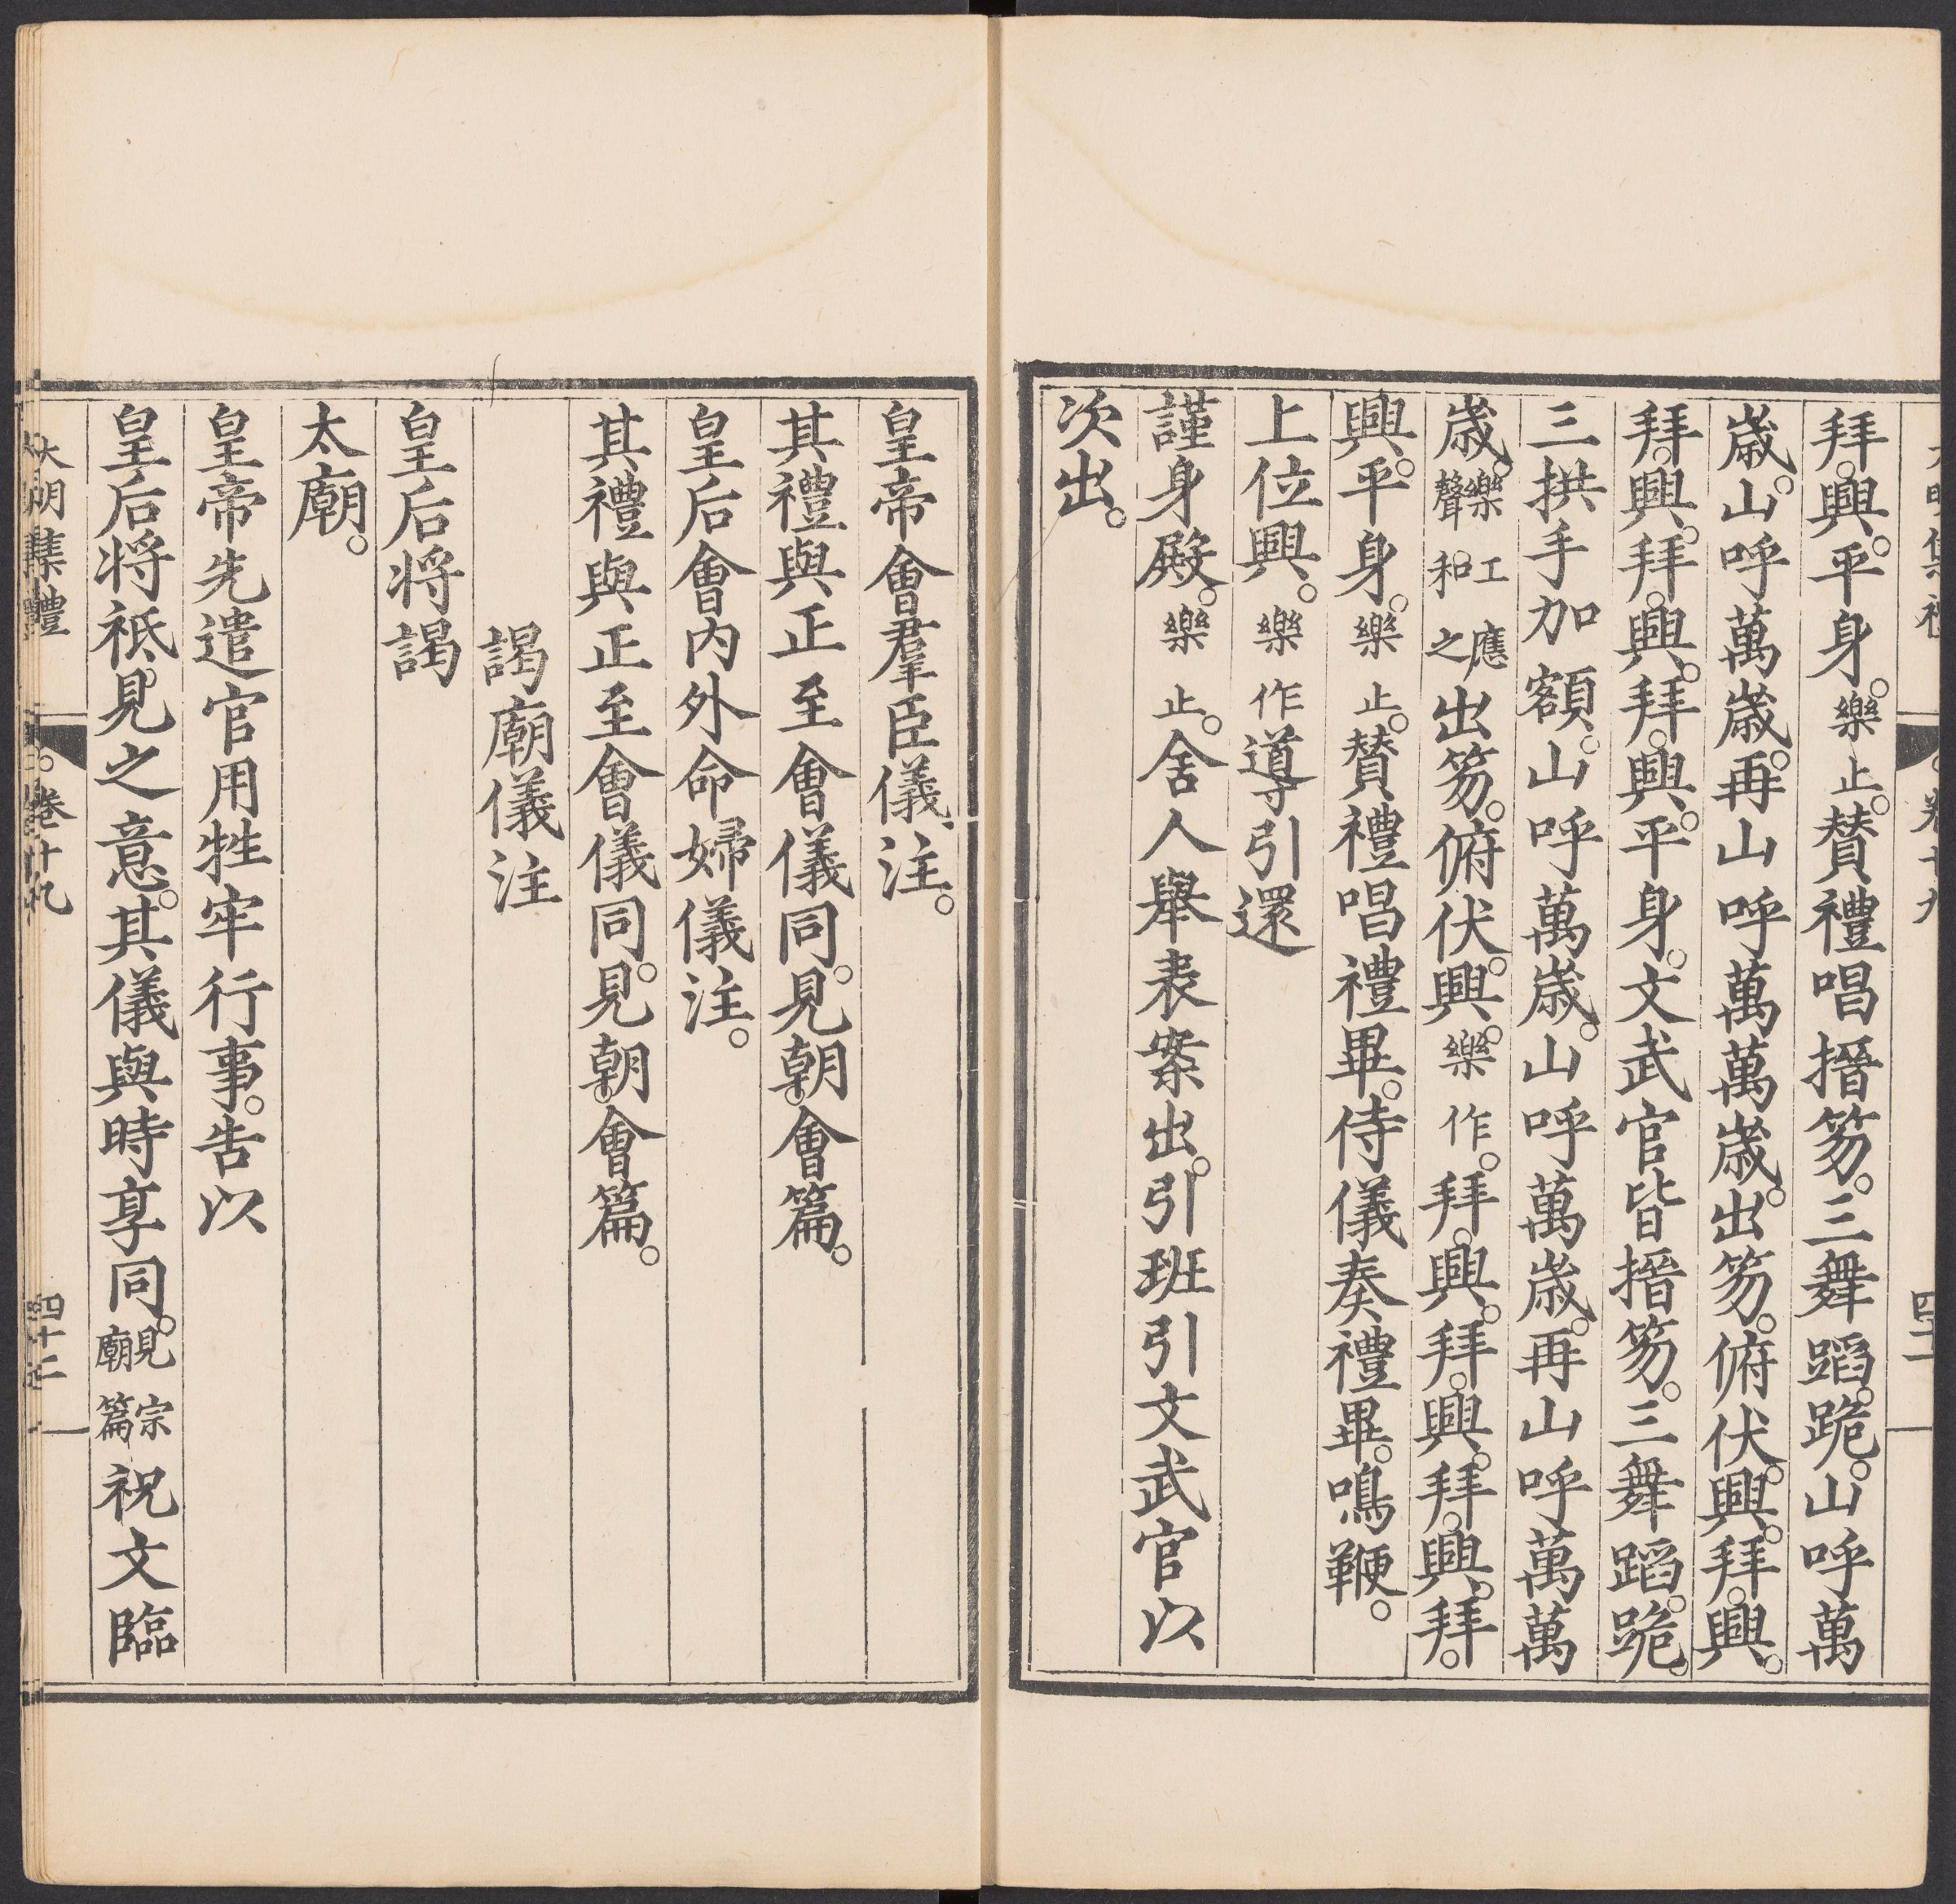 拜。興。平身。樂止。贊禮唱搢笏。三舞蹈。跪。山呼萬
歲。山呼萬歲。再山呼萬萬歲。出笏。俯伏。興。拜。興。
拜。興。拜。興。拜。興。平身。文武官皆搢笏。三舞蹈。跪。
三拱手加額。山呼萬歲。山呼萬歲。再山呼萬萬
歲。樂工應聲和之出笏。俯伏。興。樂作。拜。興。拜。興。拜。興。拜。
興。平身。樂止。贊禮唱禮畢。侍儀奏禮畢。鳴鞭。
上位興。樂作導引還
謹身殿。樂止。舍人舉表案出。引班引文武官以
次出。
皇帝會羣臣儀注。
其禮與正至會儀同。見朝會篇。
皇后會內外命婦儀注。
其禮與正至會儀同。見朝會篇。
謁廟儀注
皇后將謁
太廟。
皇帝先遣官用牲牢行事。告以
皇后將祗見之意。其儀與時享同。見宗廟篇祝文臨
卷十九
四十二